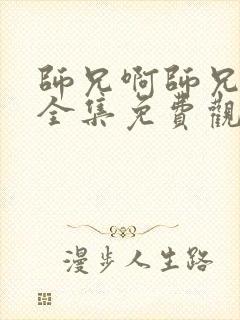 師兄啊師兄
全集免費觀
漫步人生路